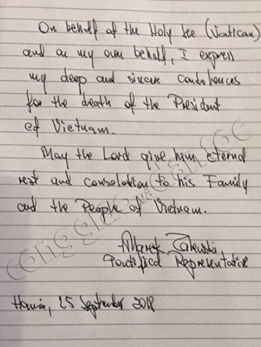 On behalf of the Holy See (Vatican)
and on my own behalf, I express
my deep and sincere condolences
for the death of the President
of Vietnam.
May the Lord give him eternal
rest and consolation to his Family
and the People of Vietnam.
Marek Zalewski
Pontifical Representative
Hanoi, 25 September 2018